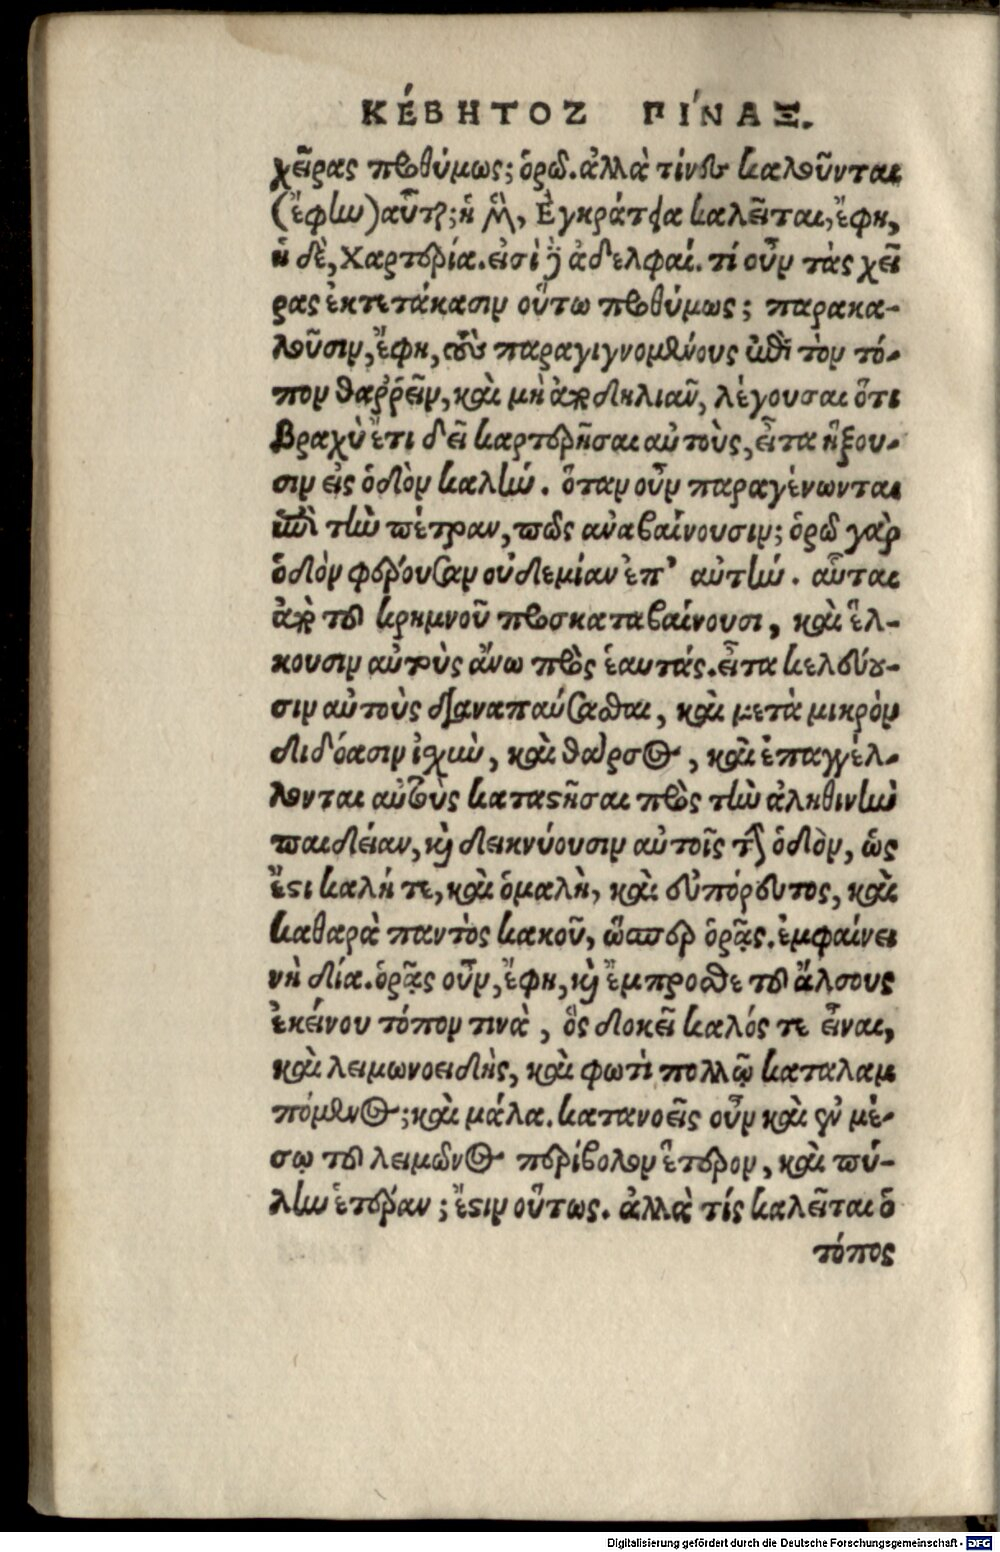 ΚΈΒΗΤΟΣ ΠΊΝΑΞ.
χεῖρας προθύμως; ὁρῶ. ἀλλὰ τίνες καλοῦνται
(ἔφην) αὗται; ἡ μὲν, Ἐγκράτεια καλεῖται, ἔφη,
ἡ δὲ, Χαρτερία. εἰσὶ δὲ ἀδελφαί. τί οὖν τὰς χεῖ
ρας ἐκτετάκασιν οὕτω προθύμως; παρακα-
λοῦσιν, ἔφη, τοὺς παραγιγνομένους ἐπὶ τὸν τό-
πον θαῤῥεῖν, καὶ μὴ ἀποδειλιᾶν, λέγουσαι ὅτι
βραχὺ ἔτι δεῖ καρτερῆσαι αὐτοὺς, εἶτα ἥξου-
σιν εἰς ὁδὸν καλήν. ὅταν οὖν παραγένωνται
ἐπὶ τὴν πέτραν, πῶς ἀναβαίνουσιν; ὁρῶ γὰρ
ὁδὸν φέρουσαν οὐδεμίαν ἐπ' αὐτήν. αὗται
ἀπὸ τοῦ κρημνοῦ προσκαταβαίνουσι, καὶ ἕλ-
κουσιν αὐτοὺς ἄνω πρὸς ἑαυτάς. εἶτα κελεύου-
σιν αὐτοὺς διαναπαύσασθαι, καὶ μετὰ μικρὸν
διδόασιν ἰχὺν, καὶ θάρσος, καὶ ἐπαγγέλ-
λονται αὐτοὺς καταστῆσαι πρὸς τὴν ἀληθινὴν
παιδείαν, καὶ δεικνύουσιν αὐτοῖς τὴν ὁδὸν, ὡς
ἔστι καλή τε, καὶ ὁμαλὴ, καὶ εὐπόρευτος, καὶ
καθαρὰ παντὸς κακοῦ, ὥσπερ ὁρᾷς. ἐμφαίνει
νὴ δία. ὁρᾷς οὖν, ἔφη, καὶ ἔμπροσθε τοῦ ἄλσους
ἐκείνου τόπον τινὰ, ὃς δοκεῖ καλός τε εἶναι,
καὶ λειμωνοειδὴς, καὶ φωτὶ πολλῷ καταλαμ
πόμενος; καὶ μάλα. κατανοεῖς οὖν καὶ ἐν μέ-
σῳ τοῦ λειμῶνος περίβολον ἕτερον, καὶ πύ-
λην ἑτέραν; ἔστιν οὕτως. ἀλλὰ τίς καλεῖται ὁ
τόπος
Digitalisierung gefördert durch die Deutsche Forschungsgemeinschaft - DFG